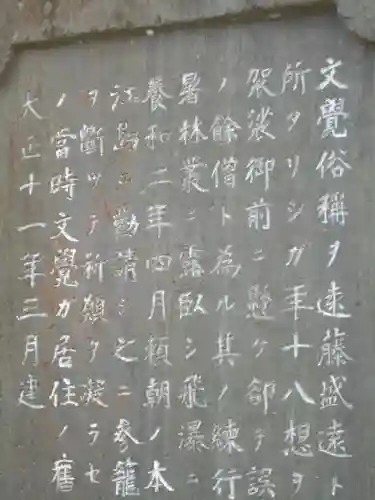 文覺俗稱ヲ遠藤盛遠ト
所タリシガ年十八想ヲ
袈裟御前ニ懸ケ郤テ誤
ノ餘僧ト為ル其ノ練行
暑林叢ニ露臥シ飛瀑ニ
養和二年四月頼朝ノ本
江島ニ勸請シ之ニ參籠
ヲ斷ツテ祈願ヲ凝ラセ
ノ當時文覺ガ居住ノ舊
大正十一年三月建